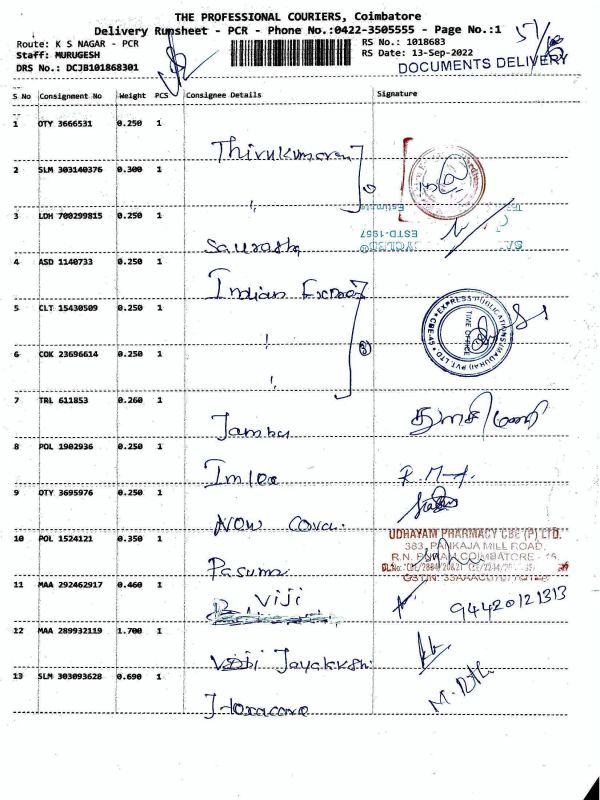 THE PROFESSIONAL COURIERS, Coimbatore
Delivery Runsheet - PCR - Phone No.:0422-3505555 - Page No.:1
Route: K S NAGAR - PCR
RS No.: 1018683
Staff: MURUGESH
RS Date: 13-Sep-2022
DRS No.: DCJB101868301
DOCUMENTS DELIVERY
S No Consignment No Weight PCS Consignee Details Signature
1 OTY 3666531 0.250 1
Thirukumaran
2 SLM 303140376 0.300 1
3 LDH 700299815 0.250 1
ESTD-1967
4 ASD 1140733 0.250 1
Indian Express
5 CLT 15430509 0.250 1
EXPRESS PUBLICATIONS (MADURAI) PVT. LTD CBE-45
TIME OFFICE
6 COK 23696614 0.250 1
7 TRL 611853 0.260 1
Jambu துளசிமணி
8 POL 1902936 0.250 1
R.M.
9 OTY 3695976 0.250 1
Now
10 POL 1524121 0.350 1
UDHAYAM PHARMACY CBE (P) LTD.
383, PANKAJA MILL ROAD,
R.N. PURAM, COIMBATORE - 45
Pasuma
11 MAA 292462917 0.460 1
Viji 94420121313
12 MAA 289932119 1.700 1
13 SLM 303093628 0.690 1